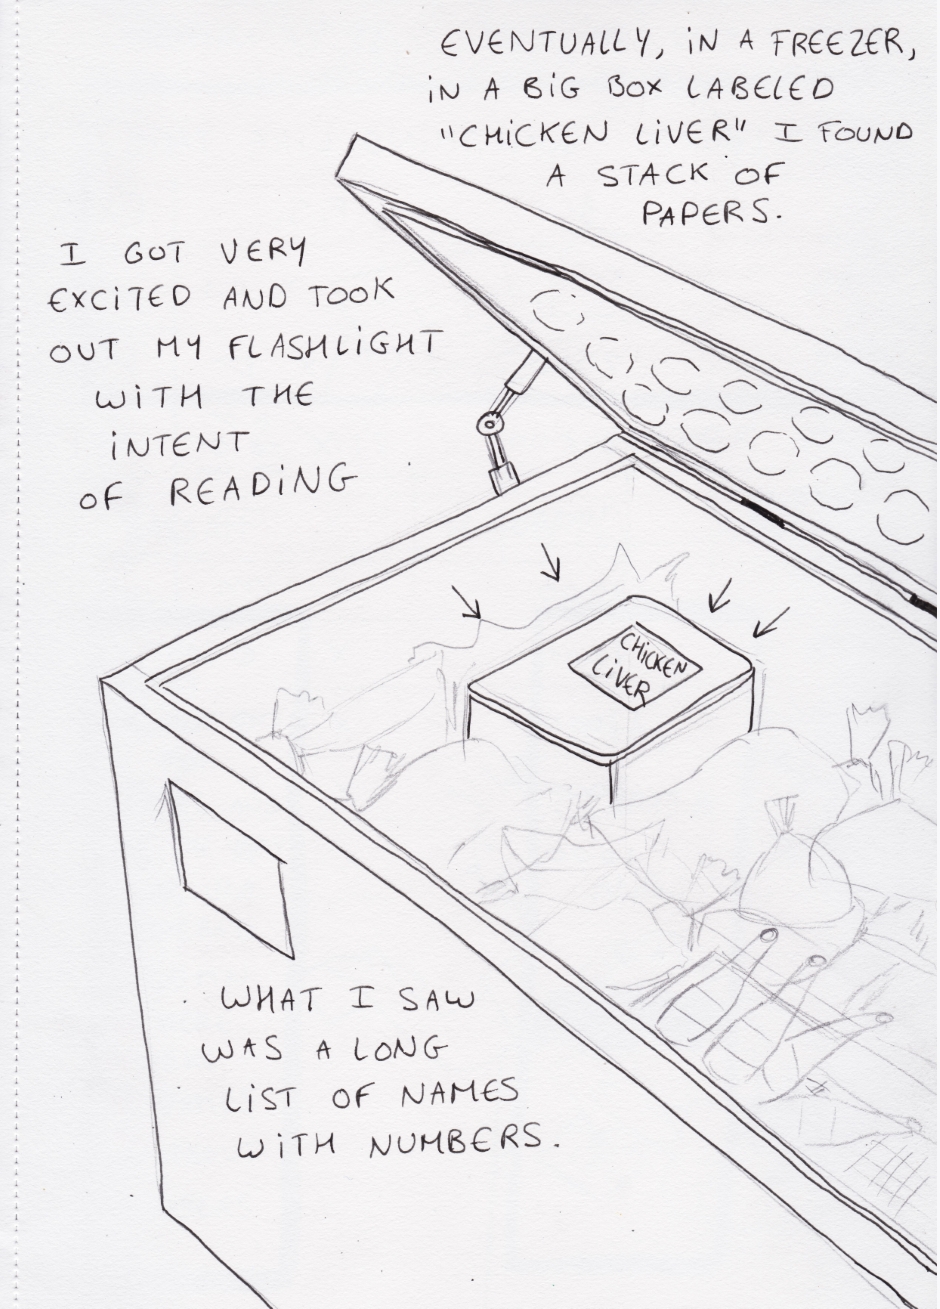 EVENTUALLY, IN A FREEZER,
IN A BIG BOX LABELED
"CHICKEN LIVER" I FOUND
A STACK OF
PAPERS.
I GOT VERY
EXCITED AND TOOK
OUT MY FLASHLIGHT
WITH THE
INTENT
OF READING
CHICKEN
LIVER
WHAT I SAW
WAS A LONG
LIST OF NAMES
WITH NUMBERS.